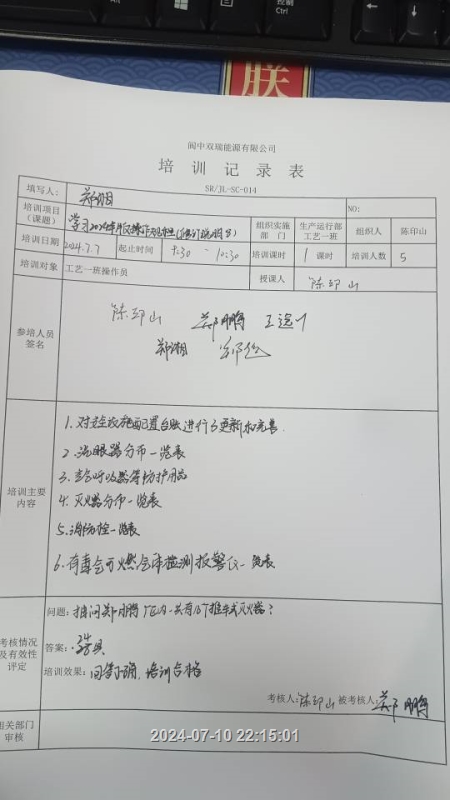 Alt
控制
Ctrl
朕
阆中双瑞能源有限公司
培训记录表
SR/JL-SC-014
填写人: 郑湘 NO:
培训项目(课题) 学习2024年版操作规程(修订说明 组织实施部门 生产运行部工艺一班 组织人 陈印山
培训日期 2024.7.7 起止时间 9:30 - 10:30 培训课时 1 课时 培训人数 5
培训对象 工艺一班操作员 授课人 陈印山
参培人员签名
陈印山 郑鹏
郑湘
培训主要内容
1. 对安全设施配置台账进行了更新和完善
2. 洗眼器分布一览表
3. 空气呼吸器等防护用品
4. 灭火器分布一览表
5. 消防栓一览表
6. 有毒可燃气体检测报警仪一览表
考核情况及有效性评定
问题: 抽问郑鹏 共有几个推车式灭火器?
答案:
培训效果: 回答正确, 培训合格
考核人: 陈印山 被考核人: 郑鹏
相关部门审核
2024-07-10 22:15:01